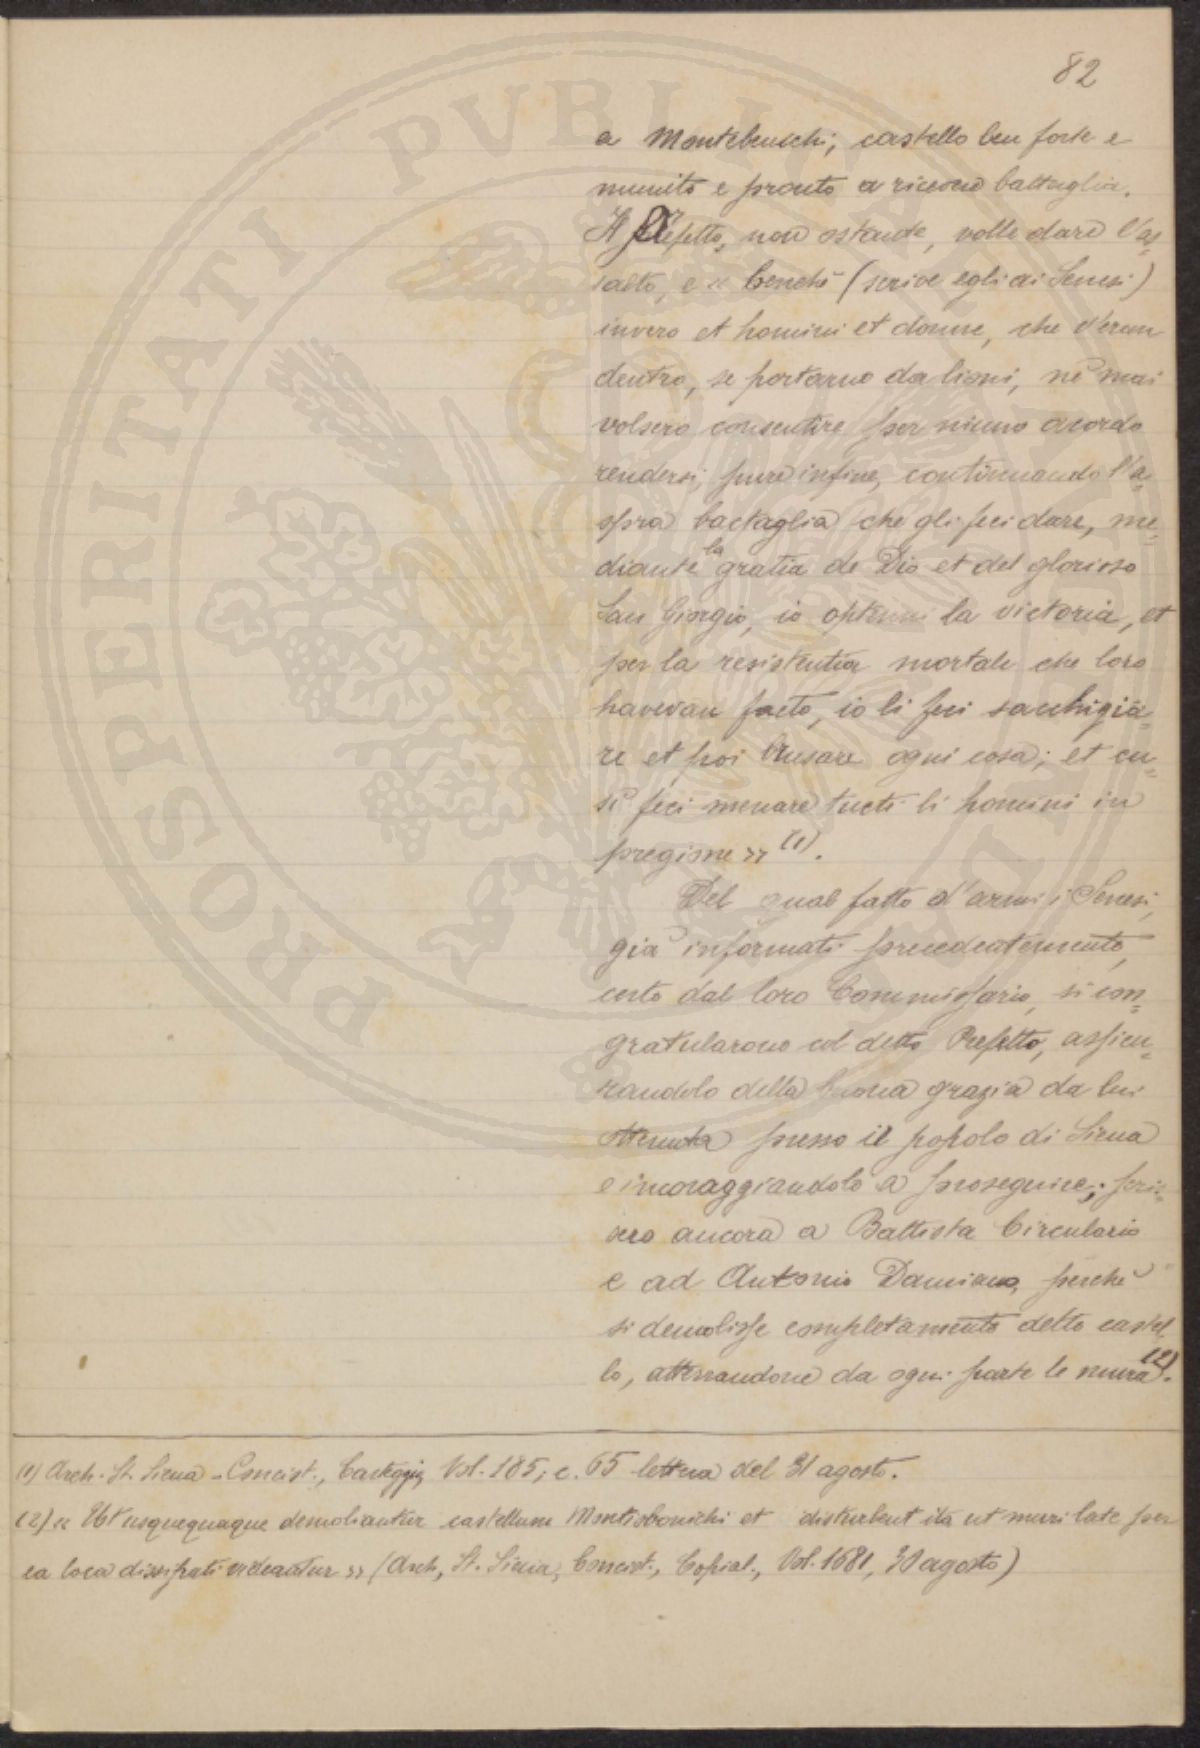 82
a Montebenichi, castello ben forte e
munito e pronto a ricever battaglia.
Il Prefetto, non ostante, volle dare l'as=
salto, e « benchè (scrive egli ai Senesi)
invero et homini et donne, che v'eran
dentro, se portarno da lioni, nè mai
volsero consentire per niuno acordo
rendersi, pure infine, continuando l'a=
spra bactaglia che gli feci dare, me=
diante la gratia de Dio et del glorioso
San Giorgio, io optenni la victoria, et
per la resistentia mortale che loro
havevan facto, io li feci sachigia=
re et poi brusare ogni cosa; et cu=
sì feci menare tucti li homini in
pregione » (1).
Del qual fatto d'armi i Senesi,
già informati precedentemente,
certo dal loro Commissario, si con=
gratularono col detto Prefetto, assicu=
randolo della buona grazia da lui
ottenuta presso il popolo di Siena
e incoraggiandolo a proseguire; scris=
sero ancora a Battista Circulario
e ad Antonio Damiano, perchè
si demolisse completamente detto castel
lo, atterrandone da ogni parte le mura (2).
(1) Arch. St. Siena - Concist., Carteggio, Vol. 185, c. 65 lettera del 31 agosto.
(2) « Ut usquequaque demoliantur castellum Montisbonichi et disturbent ita ut muri late per
ea loca dissipati videantur » (Arch. St. Siena, Concist., Copial., Vol. 1681, 30 agosto)
PROSPERITATI PVBLICAE